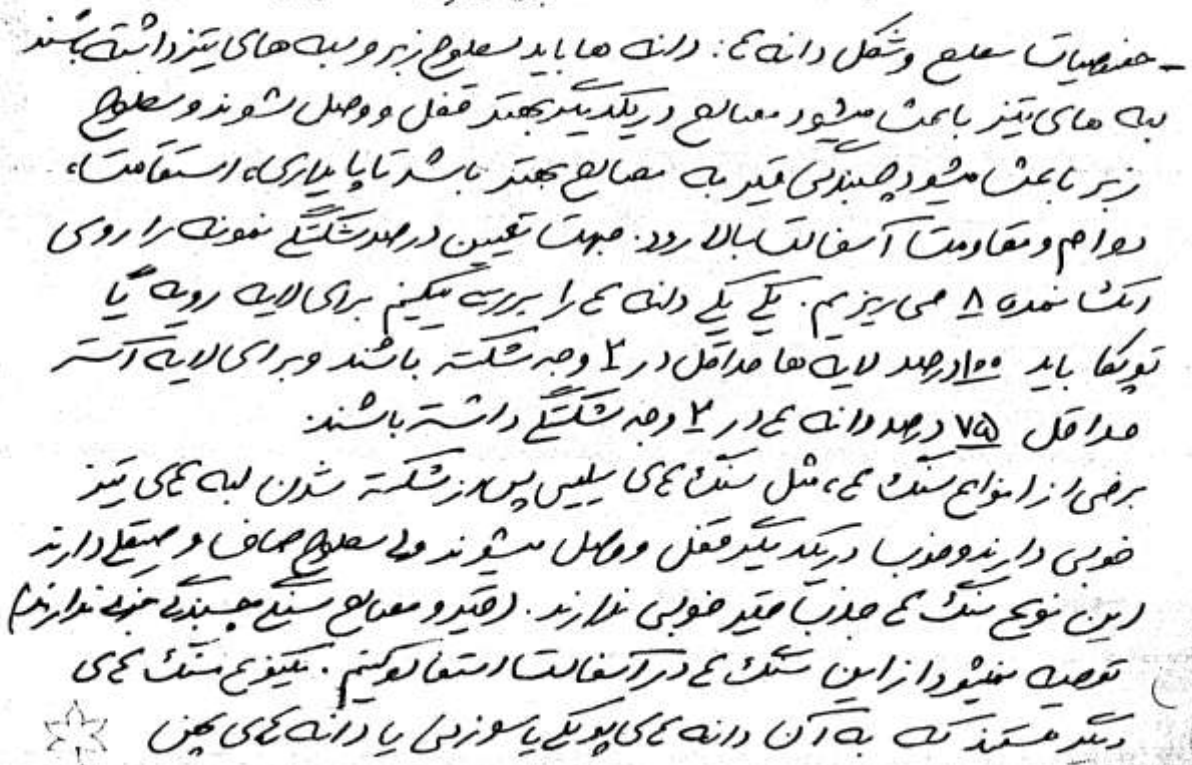 - خصوصیات سطح و شکل دانه ها: دانه ها باید سطوح زبر و لبه های تیز داشته باشند
لبه های تیز باعث میشود مصالح در یکدیگر بهتر قفل و وصل شوند و سطوح
زبر باعث میشود چسبندگی قیر به مصالح بهتر باشد تا پایداری، استقامت،
دوام و مقاومت آسفالت بالا رود. جهت تعیین درصد شکستگی نمونه را روی
الک نمره ۸ می ریزیم. یکی یکی دانه ها را بررسی میکنیم برای لایه رویه یا
توپکا باید ۱۰۰ درصد لایه ها حداقل در ۲ وجه شکسته باشند و برای لایه آستر
حداقل ۷۵ درصد دانه ها در ۲ وجه شکستگی داشته باشند.
برخی از انواع سنگ ها، مثل سنگ های سیلیس پس از شکسته شدن لبه های تیز
خوبی دارند و خوب در یکدیگر قفل و وصل میشوند ولی سطوح صاف و صیقلی دارند
این نوع سنگ ها جذب قیر خوبی ندارند. (قیر و مصالح سنگی چسبندگی خوبی ندارند)
توصیه نمیشود از این سنگ ها در آسفالت استفاده کنیم. یکنوع سنگ های
دیگر هستند که به آن دانه های پولکی یا سوزنی یا دانه های پهن